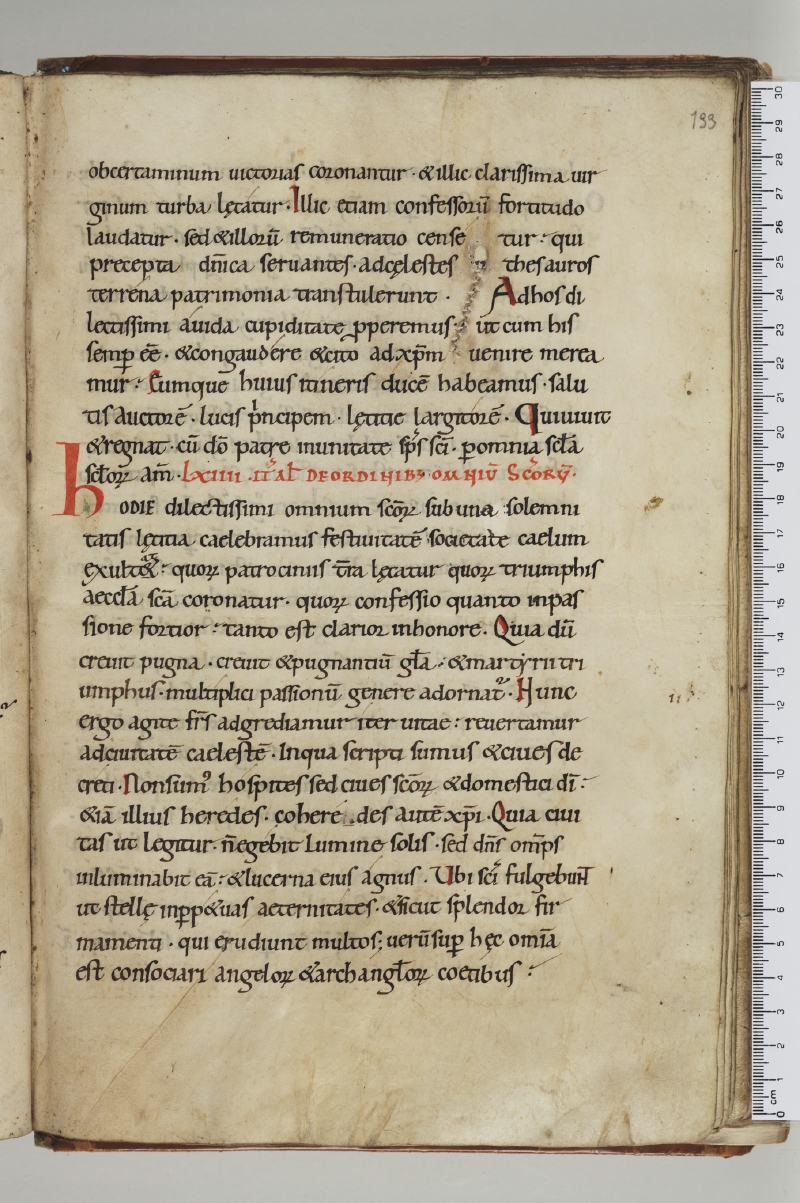 133
obcertaminum uictorias coronantur · & illic clarissima uir
ginum turba lętatur · Illic etiam confessorū fortitudo
laudatur · sed & illorū remuneratio cense tur : qui
precepta dn̄ica seruantes · adcęlestes thesauros
terrena patrimonia transtulerunt · Adhos di
lectissimi auida cupiditate ꝓperemus : ut cum his
semꝑ eē · & congaudere & cito ad xp̄m uenire merea
mur : Cumque huius itineris ducē habeamus · salu
tis Auctorē · lucis p̍ncipem · lętitie largitorē · Qui uiuit
& regnat · cū dō patre inunitate sp̄s sc̄i · ꝑ omnia sc̄la
sc̄loꝝ am̄ · LXIIII · ITAL̄ DE ORDINIB; OMNIŪ SC̄ORꝝ ·
HODIE dilectissimi omnium sc̄oꝝ sub una solemni
tatis lętitia caelebramus festiuitatē societate caelum
exult& : quoꝝ patrociniis t̄ra lętatur quoꝝ triumphis
aeccl̄a sc̄a coronatur · quoꝝ confessio quanto inpas
sione fortior : tanto est clarior inhonore · Quia dū
creuit pugna · creuit & pugnantiū gl̄a · & martyrii tri
umphus · multiplici passionū genere adornat᷒ · Hunc
ergo agite fr̄s adgrediamur iter uitae : reuertamur
adciuitatē caelestē · Inqua scripti sumus & ciues de
creti · Non sumꝰ hospites sed ciues sc̄oꝝ & domestici dī :
& iā illius heredes · cohere des autē xp̄i · Quia ciui
tas ut legitur · n̄ egebit Lumine solis · sed dn̄s om̄ps
inluminabit eā : & lucerna eius agnus · Ubi sc̄i fulgebunt
ut stellę inꝑp&uas aeternitates · & sicut splendor fir
mamenti · qui erudiunt multos ; uerū suꝑ hęc om̄ia
est consociari angeloꝝ & archangl̄oꝝ coetibus :